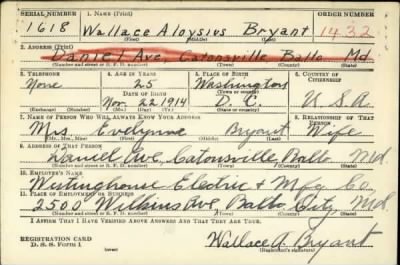 SERIAL NUMBER 1. NAME (Print) ORDER NUMBER
1618 Wallace Aloysius Bryant 1432
(First) (Middle) (Last)
2. ADDRESS (Print)
Daniel Ave, Catonsville Balto Md.
(Number and street or R. F. D. number) (Town) (County) (State)
3. TELEPHONE 4. AGE IN YEARS 5. PLACE OF BIRTH 6. COUNTRY OF CITIZENSHIP
None 25 Washington
DATE OF BIRTH (Town or county)
Nov. 22 1914 D. C. U. S. A.
(Exchange) (Number) (Mo.) (Day) (Yr.) (State or country)
7. NAME OF PERSON WHO WILL ALWAYS KNOW YOUR ADDRESS 8. RELATIONSHIP OF THAT PERSON
Mrs. Evelynne Bryant Wife
(Mr., Mrs., Miss) (First) (Middle) (Last)
9. ADDRESS OF THAT PERSON
Daniel Ave, Catonsville Balto Md.
(Number and street or R. F. D. number) (Town) (County) (State)
10. EMPLOYER'S NAME
Westinghouse Electric + Mfg Co.
11. PLACE OF EMPLOYMENT OR BUSINESS
2500 Wilkins Ave, Balto City, Md.
(Number and street or R. F. D. number) (Town) (County) (State)
I AFFIRM THAT I HAVE VERIFIED ABOVE ANSWERS AND THAT THEY ARE TRUE.
REGISTRATION CARD
D. S. S. Form 1
Wallace A. Bryant
(Registrant's signature)